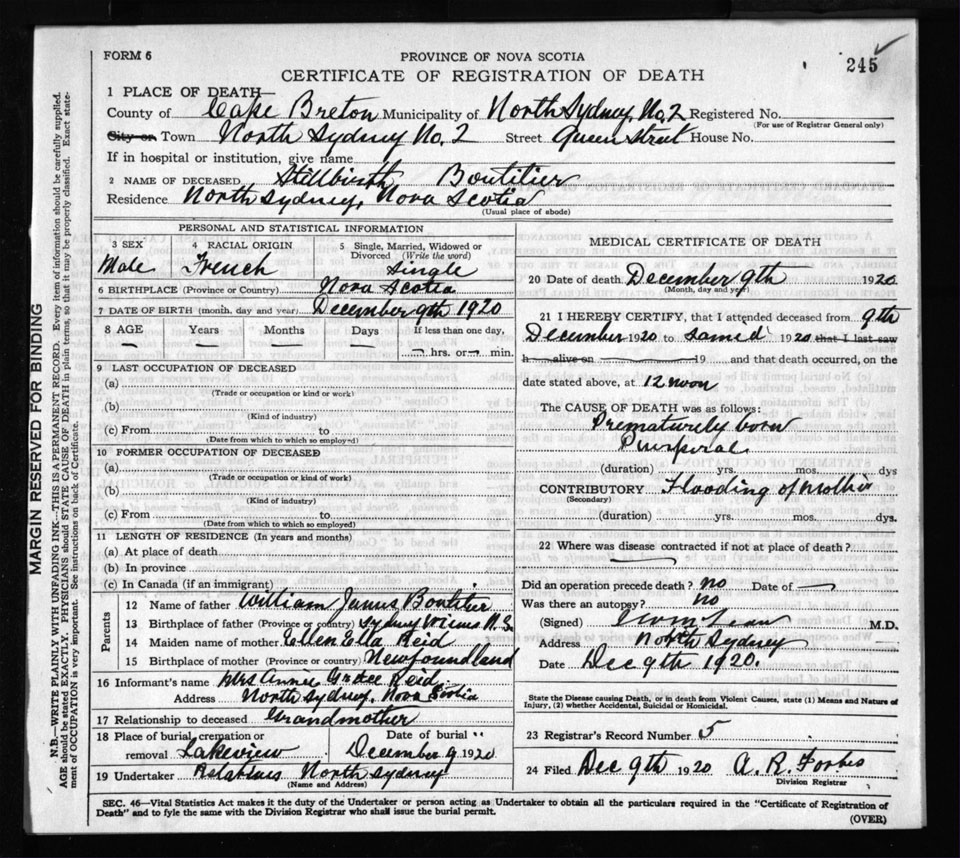 FORM 6
PROVINCE OF NOVA SCOTIA
245
CERTIFICATE OF REGISTRATION OF DEATH
1 PLACE OF DEATH—
County of Cape Breton Municipality of North Sydney, No, 2 Registered No.
(For use of Registrar General only)
City or Town North Sydney No. 2 Street Queen Street House No.
If in hospital or institution, give name
2 NAME OF DECEASED Stillbirth Boutilier
Residence North Sydney, Nova Scotia
(Usual place of abode)
PERSONAL AND STATISTICAL INFORMATION
3 SEX Male
4 RACIAL ORIGIN French
5 Single, Married, Widowed or Divorced (Write the word) Single
6 BIRTHPLACE (Province or Country) Nova Scotia
7 DATE OF BIRTH (month, day and year) December 9th 1920
8 AGE Years Months Days If less than one day,
— — — hrs. or — min.
9 LAST OCCUPATION OF DECEASED
(a)
(Trade or occupation or kind or work)
(b)
(Kind of industry)
(c) From to
(Date from which to which so employed)
10 FORMER OCCUPATION OF DECEASED
(a)
(Trade or occupation or kind of work)
(b)
(Kind of industry)
(c) From to
(Date from which to which so employed)
11 LENGTH OF RESIDENCE (In years and months)
(a) At place of death
(b) In province
(c) In Canada (if an immigrant)
Parents
12 Name of father William James Boutilier
13 Birthplace of father (Province or country) Sydney Mines N.S.
14 Maiden name of mother Ellen Ella Reid
15 Birthplace of mother (Province or country) Newfoundland
16 Informant's name Mrs Annie Grace Reid
Address North Sydney, Nova Scotia
17 Relationship to deceased Grandmother
18 Place of burial, cremation or removal Lakeview
Date of burial December 9 1920
19 Undertaker Relatives North Sydney
(Name and Address)
MEDICAL CERTIFICATE OF DEATH
20 Date of death December 9th 1920
(Month, day and year)
21 I HEREBY CERTIFY, that I attended deceased from 9th
December 1920 to same d 1920 that I last saw
h alive on 19 and that death occurred, on the
date stated above, at 12 noon
The CAUSE OF DEATH was as follows:
Prematurely born
(duration) yrs. mos. dys
CONTRIBUTORY Flooding of mother
(Secondary)
(duration) yrs. mos. dys.
22 Where was disease contracted if not at place of death?
Did an operation precede death? No Date of —
Was there an autopsy? no
(Signed) M.D.
Address North Sydney
Date Dec 9th 1920.
State the Disease causing Death, or in death from Violent Causes, state (1) Means and Nature of
Injury, (2) whether Accidental, Suicidal or Homicidal.
23 Registrar's Record Number 5
24 Filed Dec 9th 1920 A. R. Forbes
Division Registrar
SEC. 46—Vital Statistics Act makes it the duty of the Undertaker or person acting as Undertaker to obtain all the particulars required in the "Certificate of Registration of
Death" and to fyle the same with the Division Registrar who shall issue the burial permit.
(OVER)
MARGIN RESERVED FOR BINDING
N.B.—WRITE PLAINLY WITH UNFADING INK—THIS IS A PERMANENT RECORD. Every item of information should be carefully supplied.
AGE should be stated EXACTLY. PHYSICIANS should STATE CAUSE OF DEATH in plain terms, so that it may be properly classified. Exact state-
ment of OCCUPATION is very important. See instructions on back of Certificate.